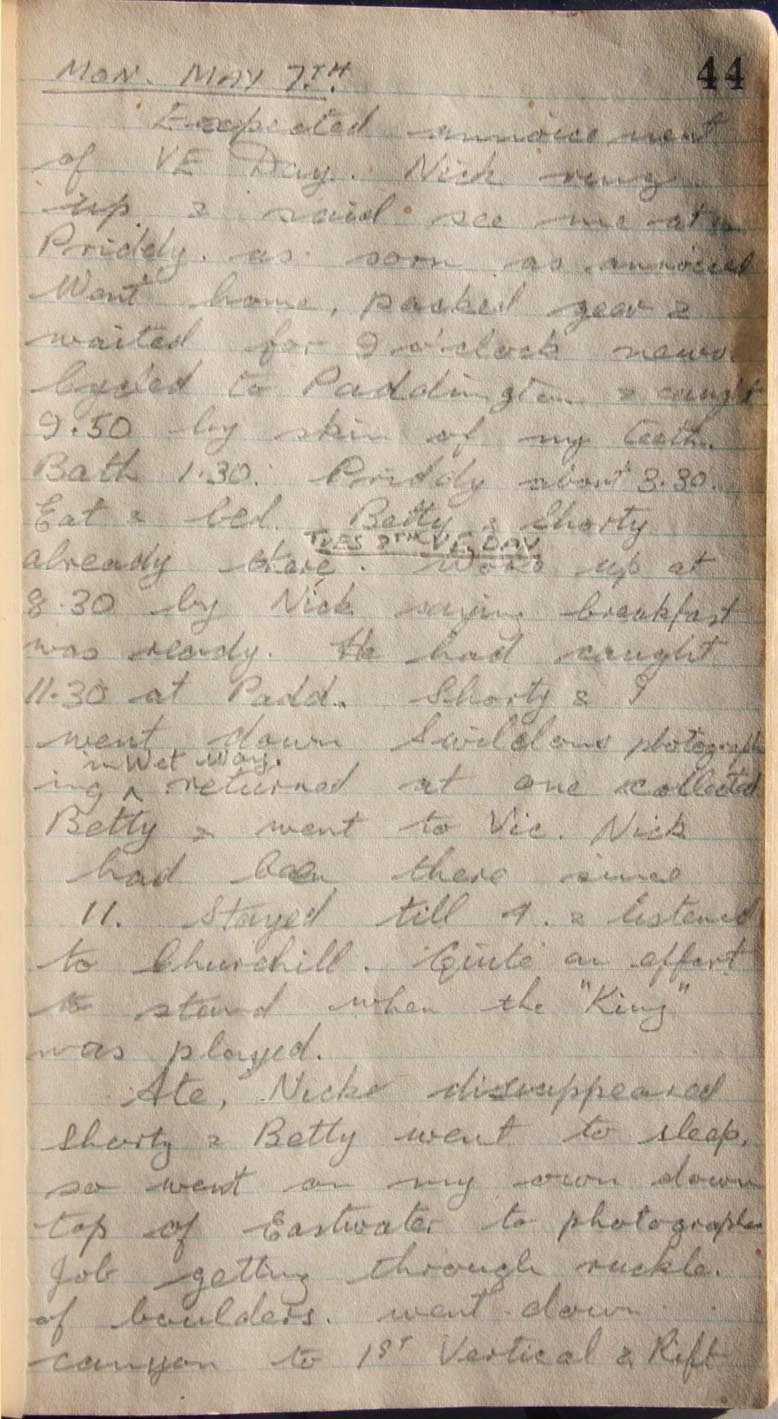 44
MON. MAY 7TH.
Expected annoicement
of VE Day. Nick rung
up & said see me at
Priddy. as soon as annoiced
Went home, packed gear &
waited for 9 o'clock news.
Cycled to Paddington & caught
9.50 by skin of my teeth.
Bath 1.30. Priddy about 3.30.
Eat & bed. Betty & Shorty
TUES 8TH VE. DAY
already there. Woke up at
8.30 by Nick saying breakfast
was ready. He had caught
11.30 at Padd. Shorty & I
went down Swildons photograph
in Wet Way.
ing ^ returned at one collected
Betty & went to Vic. Nick
had been there since
11. Stayed till 4. & listened
to Churchill. Quite an effort
to stand when the "King"
was played.
Ate, Nick disappeared
Shorty & Betty went to sleep,
so went on my own down
top of Eastwater to photograph
Job getting through ruckle.
of boulders. went down
canyon to 1ST Vertical & Rift